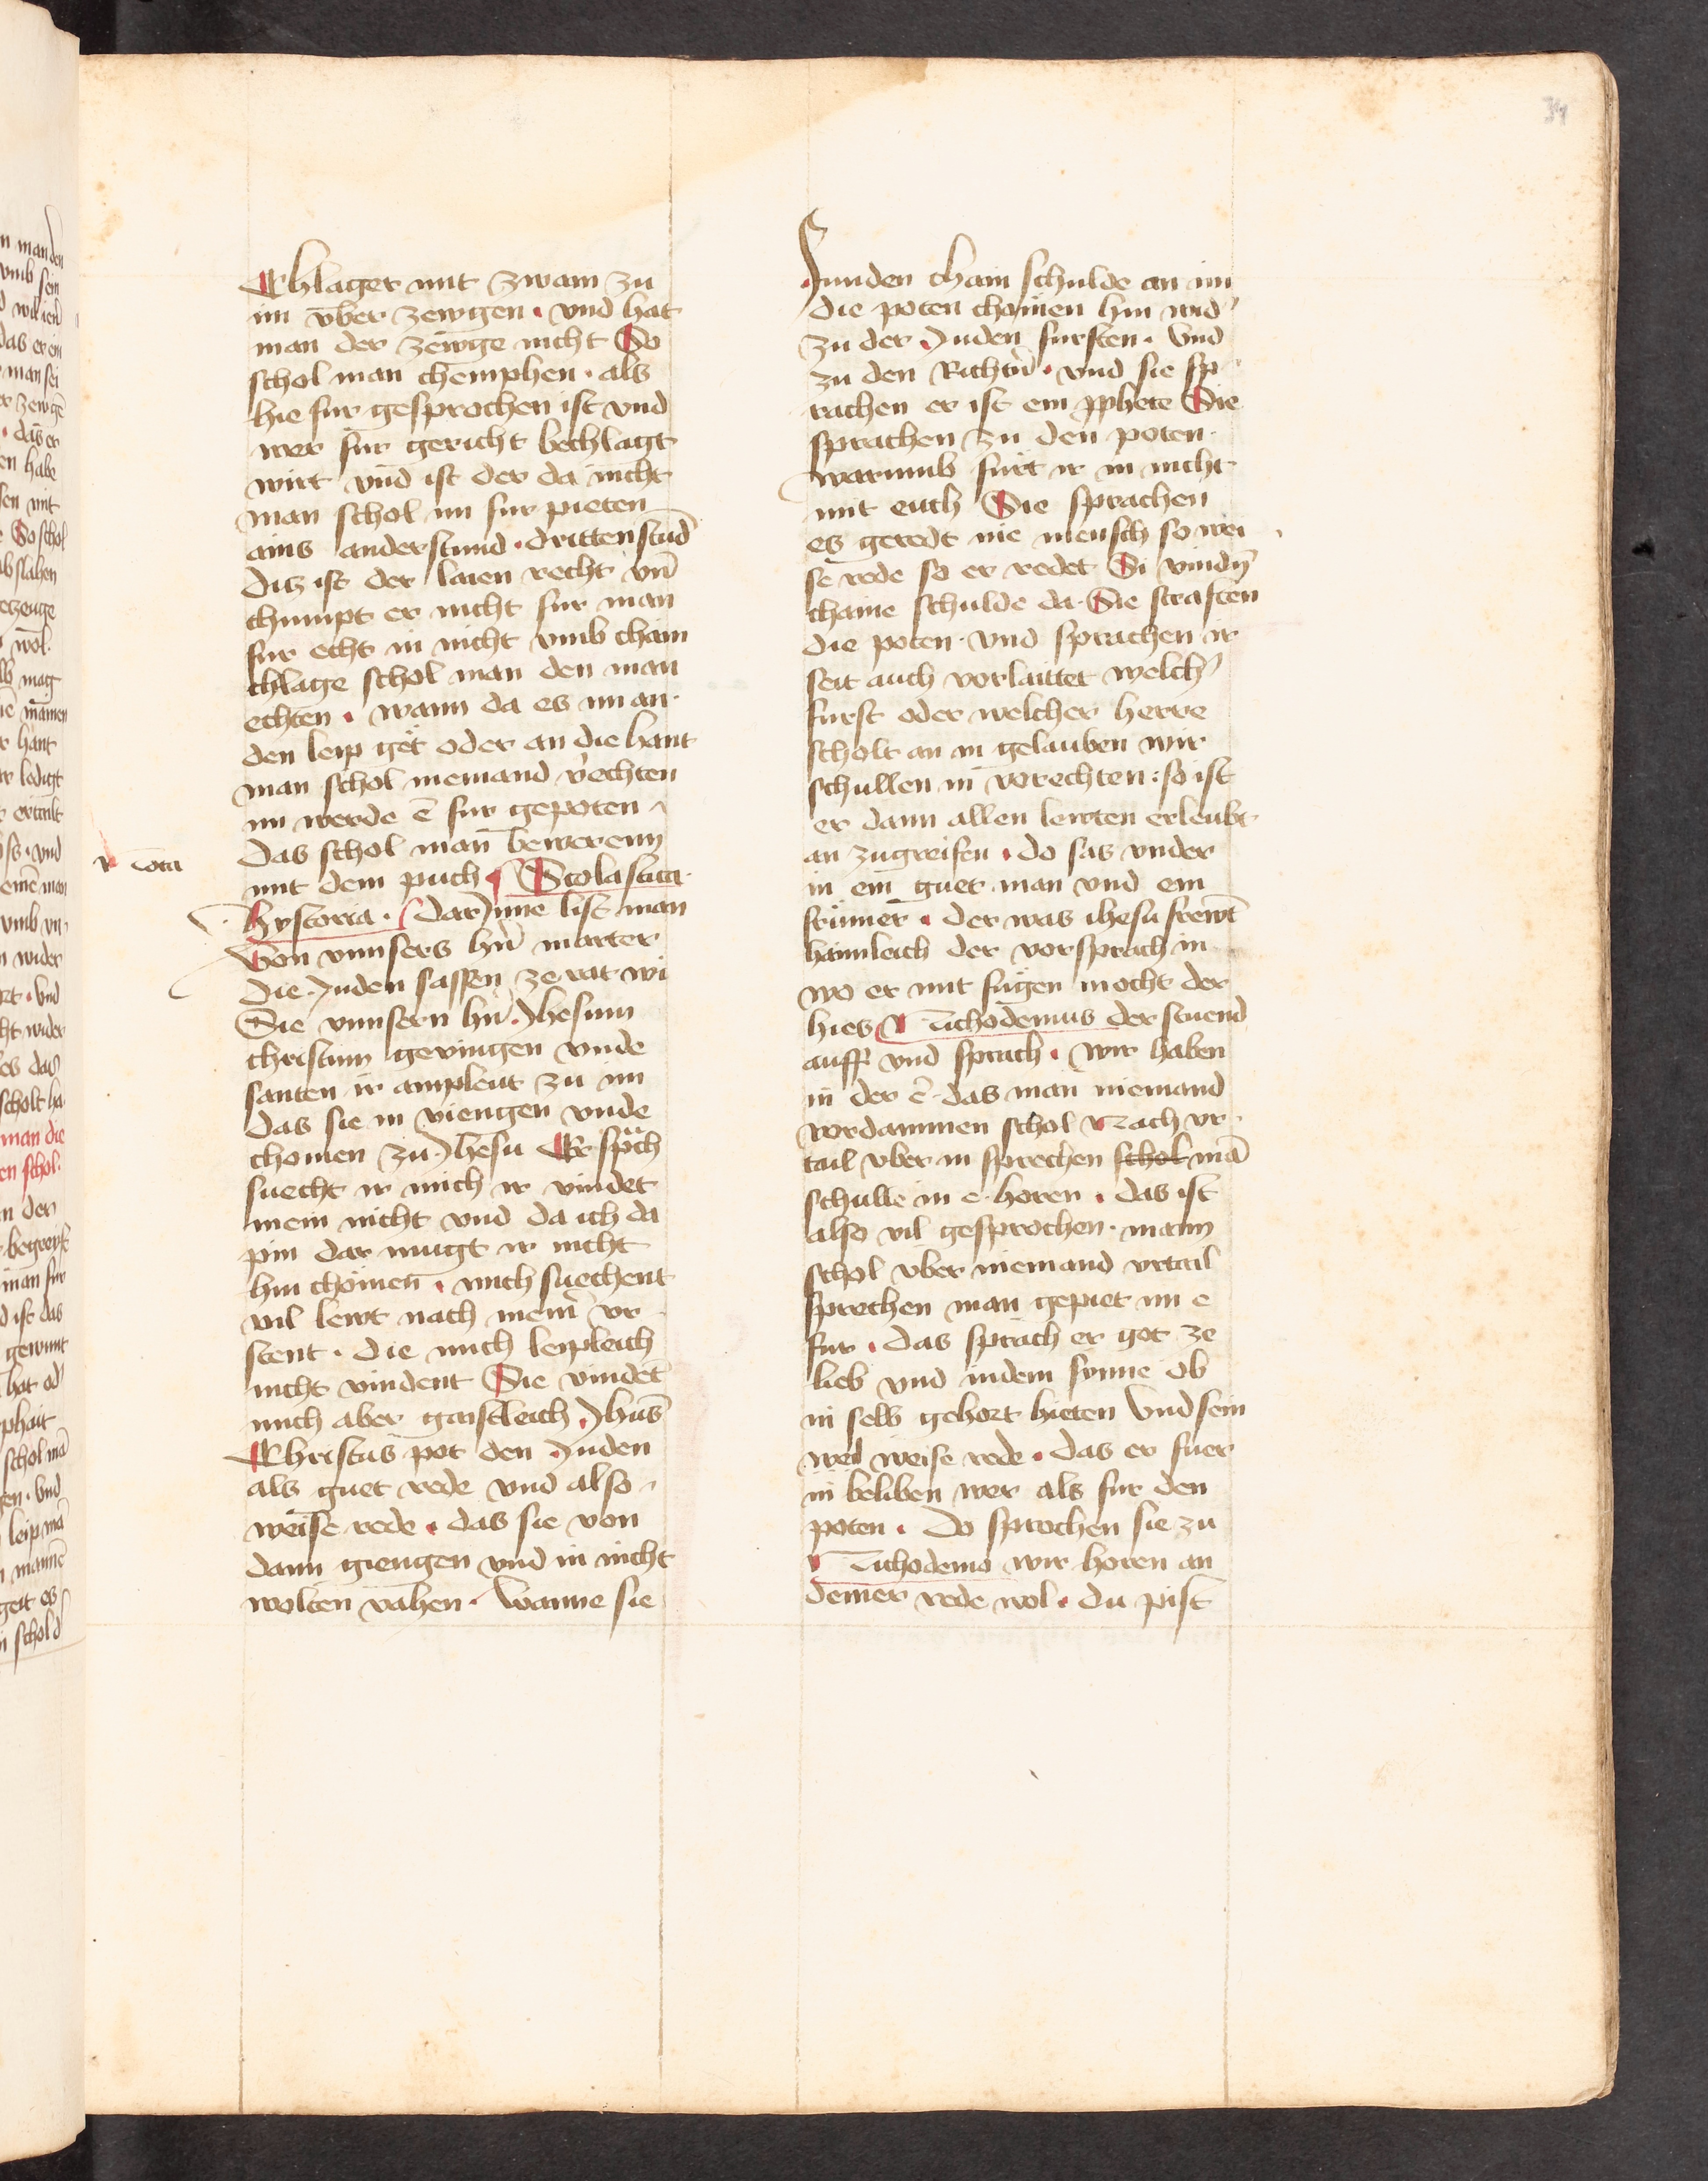 34
Chlager mit zwain zu
im vber zewgen · vnd hat
man der zewge nicht So
schol man chemphen · als
hie fur gesprochen ist vnd
wer fur gericht bechlagt
wirt vnd ist der da nicht
man schol im fur pieten
ains anderstund · drittenstūd
diz ist der laien recht vn̄
chumpt er nicht fur man
fur echt in nicht vmb chain
chlage schol man den man
echten · wann da es im an
den leip get oder an die hant
man schol niemand v̄echten
im werde ē fur gepoten
das schol man bewerenn
Nota
mit dem puch Scolastica
hystoria · darJnne list man
Von vnnsers hn̄ marter
die Juden sassen ze rat wi
Sie vnnsern hn̄ Jhesum
christum geviengen vnde
santen ir ampleut zu im
das sie in viengen vnde
chomen zu Jhesu Er sprach
suecht ir mich ir vindet
mein nicht vnd da ich da
pin dar mugt ir nicht
hin chomen · mich suechent
vil lewt nach meiner vr
stent · die mich leipleich
nicht vindent Sie vindet
mich aber gaistleich Jhūs
Christus pot den Juden
als guet rede vnd also
weise rede · das sie von
dann giengen vnd in nicht
wolten vahen · Wanne sie
funden chain schulde an im
die poten chomen hin wid'
zu der Juden fursten · Vnd
zu den Richtn̄ · vnd sie sp
rachen er ist ein p̄phete Sie
sprachen zu den poten
warumb furt ir in nicht
mit euch Sie sprachen
es geredt nie mensch so wei
se rede so er redet Si vindn̄
chaine schulde da · Sie straften
die poten · vnd sprachen ir
seit auch vorlaittet welch'
furst oder welcher herre
scholt an in gelauben wir
schullen in vorechten : so ist
er dann allen lewten erleubt
an zugreifen · do sas vnder
in ein guet man vnd ein
frumer · der was ihesu frewt
haimleich der vorsprach in
wo er mit fugen mocht der
hies Nichodemus der stuend
auff vnd sprach · wir haben
in der ē das man niemand
vordammen schol Nach vr
tail vber in sprechen schol mā
schulle in e horen · das ist
also vil gesprochen · mann
schol vber niemand vrtail
sprechen man gepiet im e
fur · das sprach er got ze
lieb vnd indem synne ob
in selb gehort hieten Vnd sein
weise rede · das er fuer
in beliben wer als fur den
poten · do sprochen sie zu
Nichodemo wir horen an
deiner rede wol · du pist